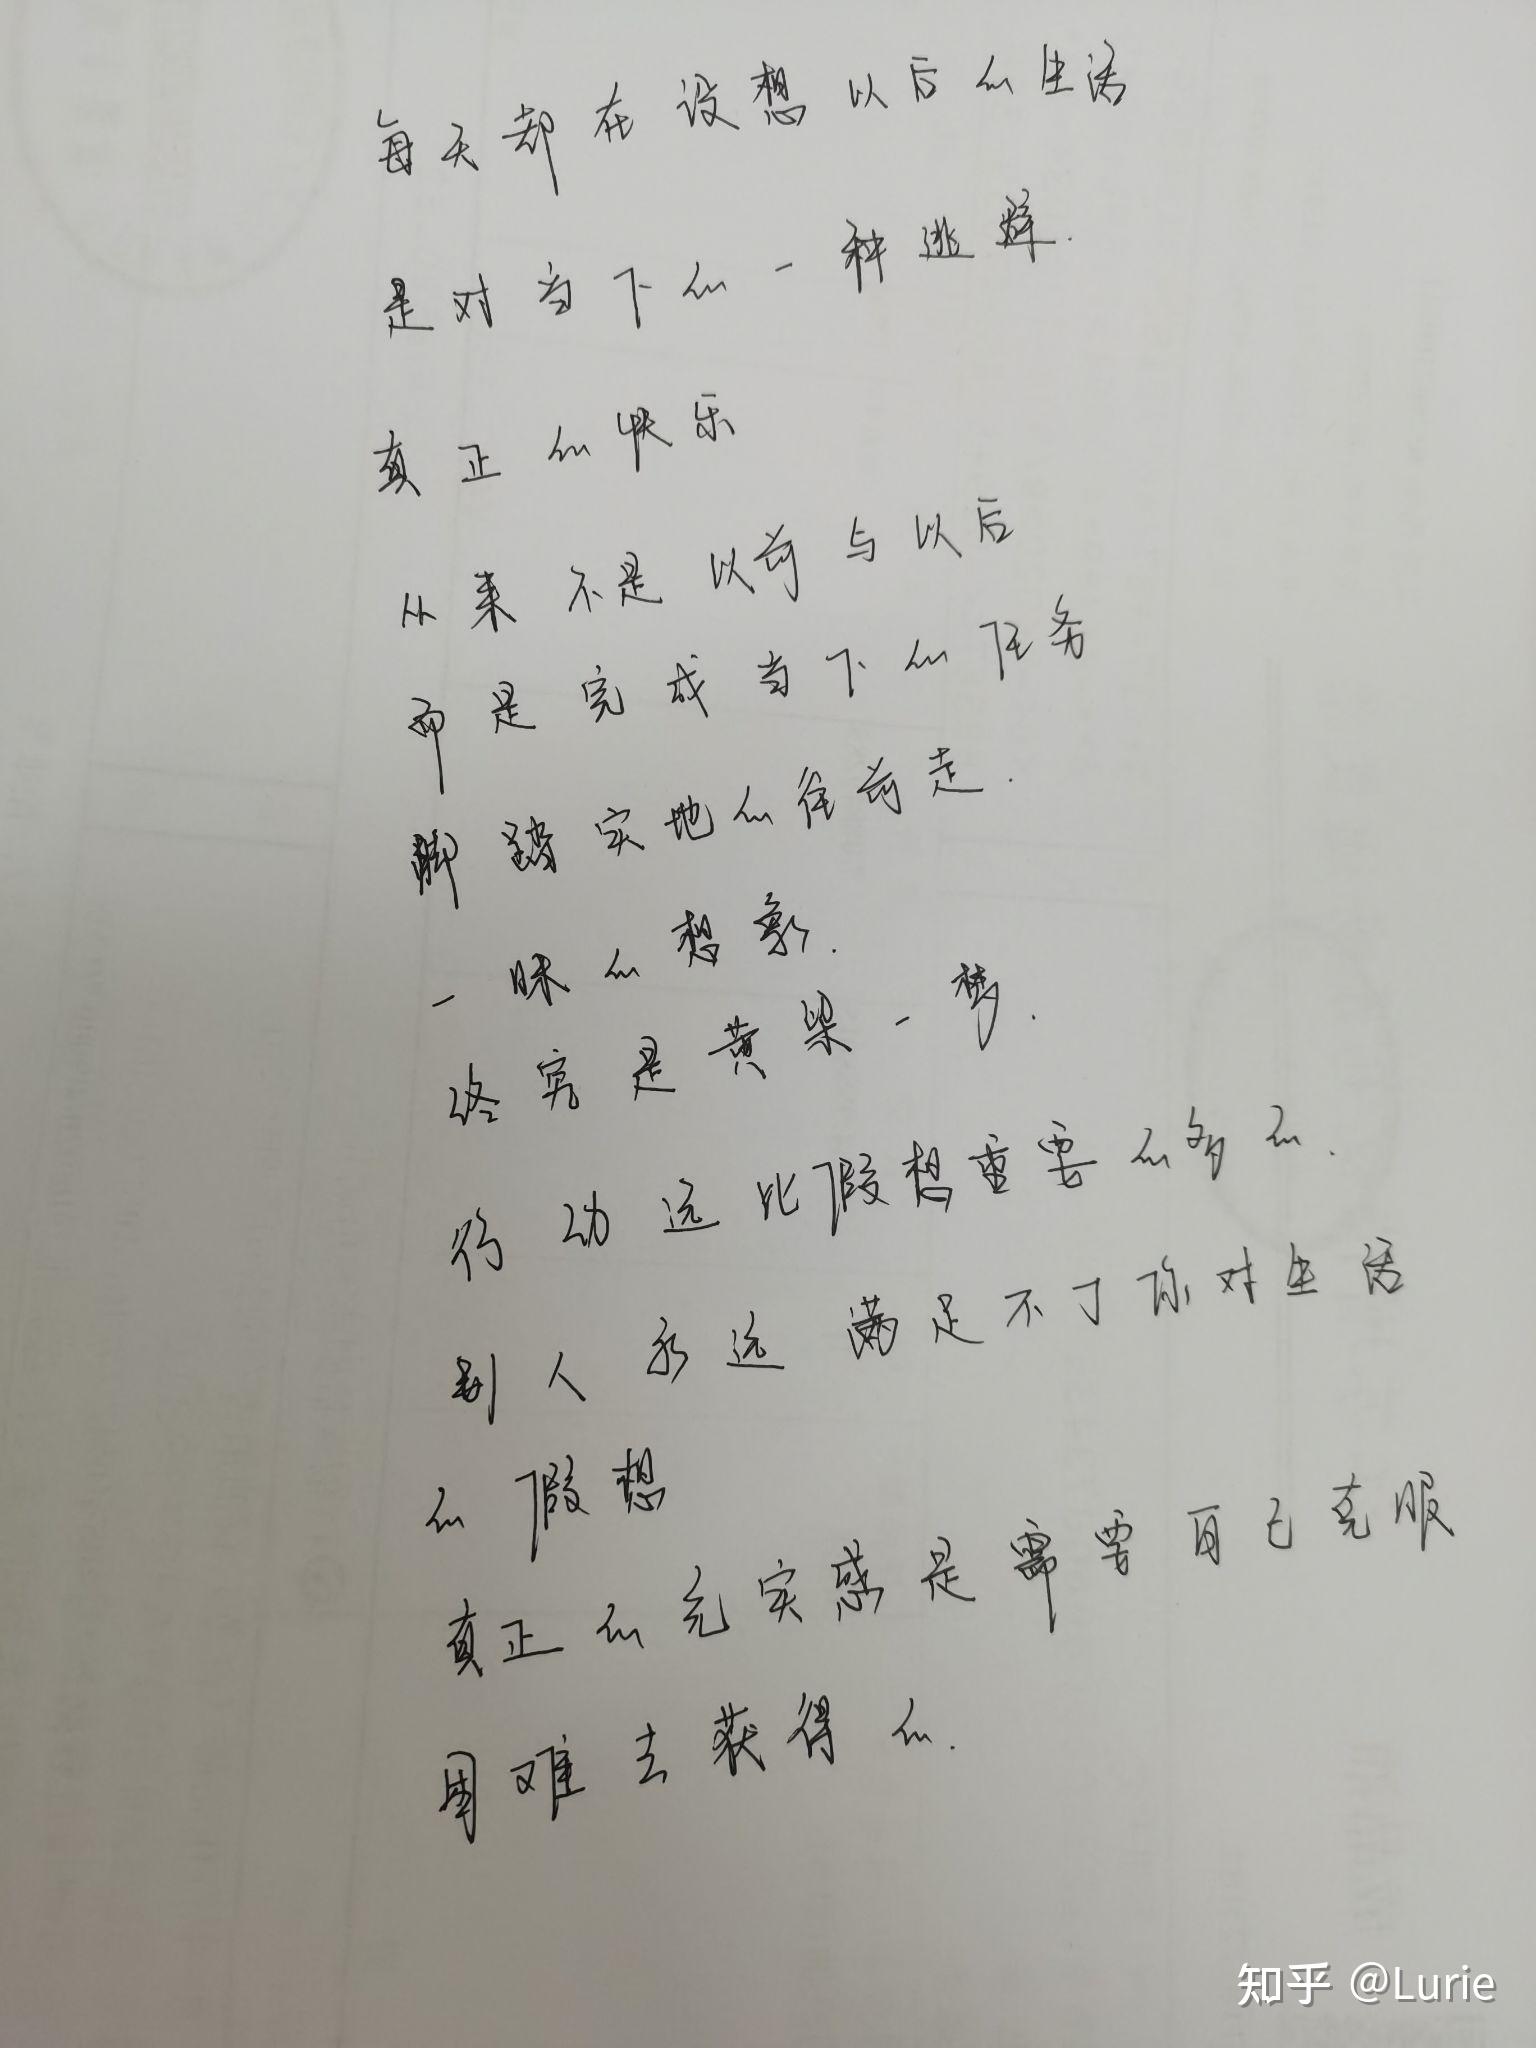 每天都在设想以后的生活
是对当下的一种逃避.
真正的快乐
从来不是以前与以后
而是完成当下的任务
脚踏实地的往前走.
一味的想象.
终究是黄梁一梦.
行动远比假想重要的多的.
别人永远满足不了你对生活
的假想
真正的充实感是需要自己克服
困难去获得的.
知乎 @Lurie